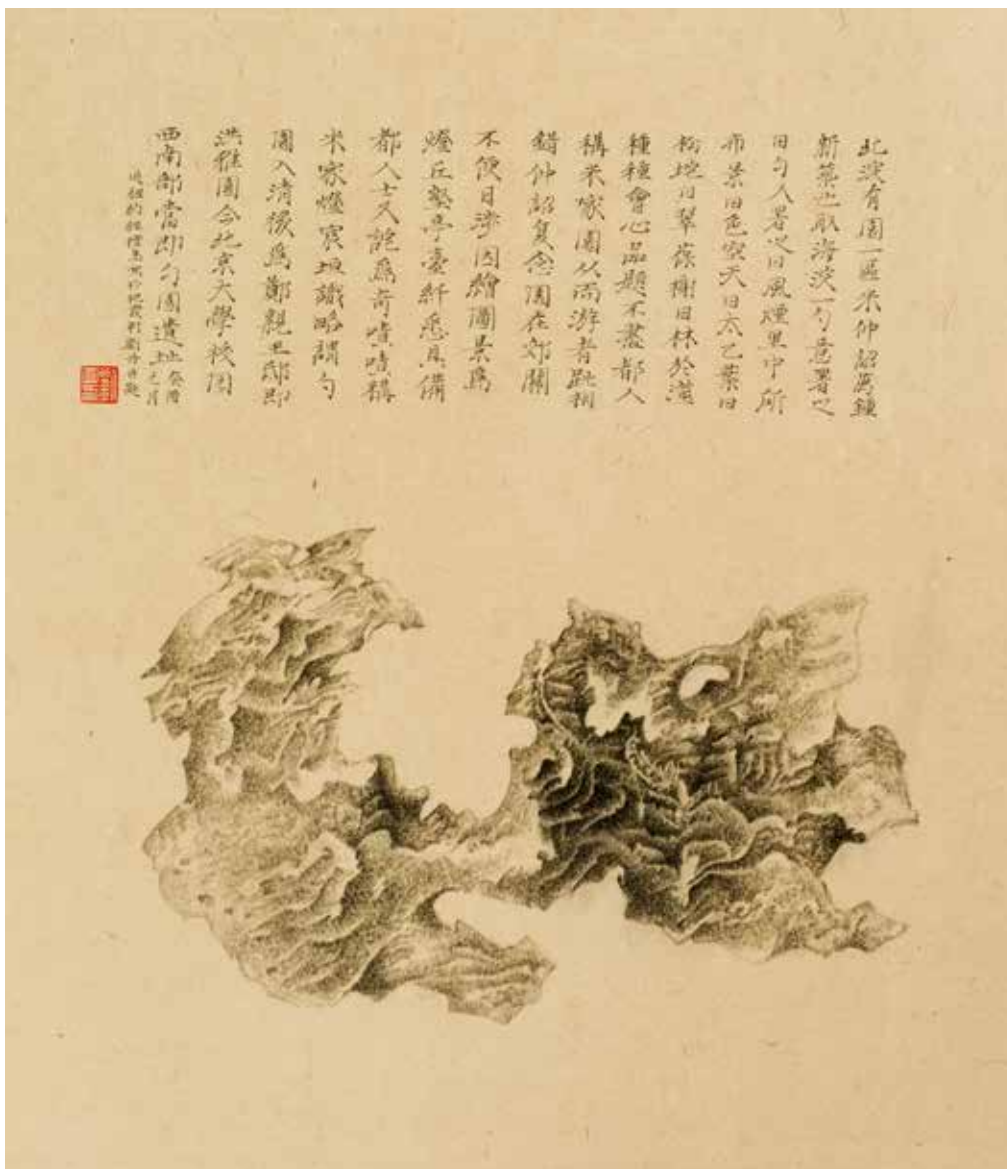 北淀有園一區米仲詔萬鍾
新築也取海淀一勺意署之
曰勺又署之曰風煙里中所
布景曰色空天曰太乙葉曰
松坨曰翠葆榭曰林於澨
種種會心品題不盡都人
稱米家園从而游者趾相
錯仲詔复念園在郊關
不便日涉因繪園景爲
燈丘壑亭臺纤悉具備
都人士又詫爲奇嘖嘖稱
米家燈宸垣識略謂勺
園入清後爲鄭親王邸即
洪雅園今北京大學校園
西南部當即勺園遺址
元月
紐約 劉丹并題